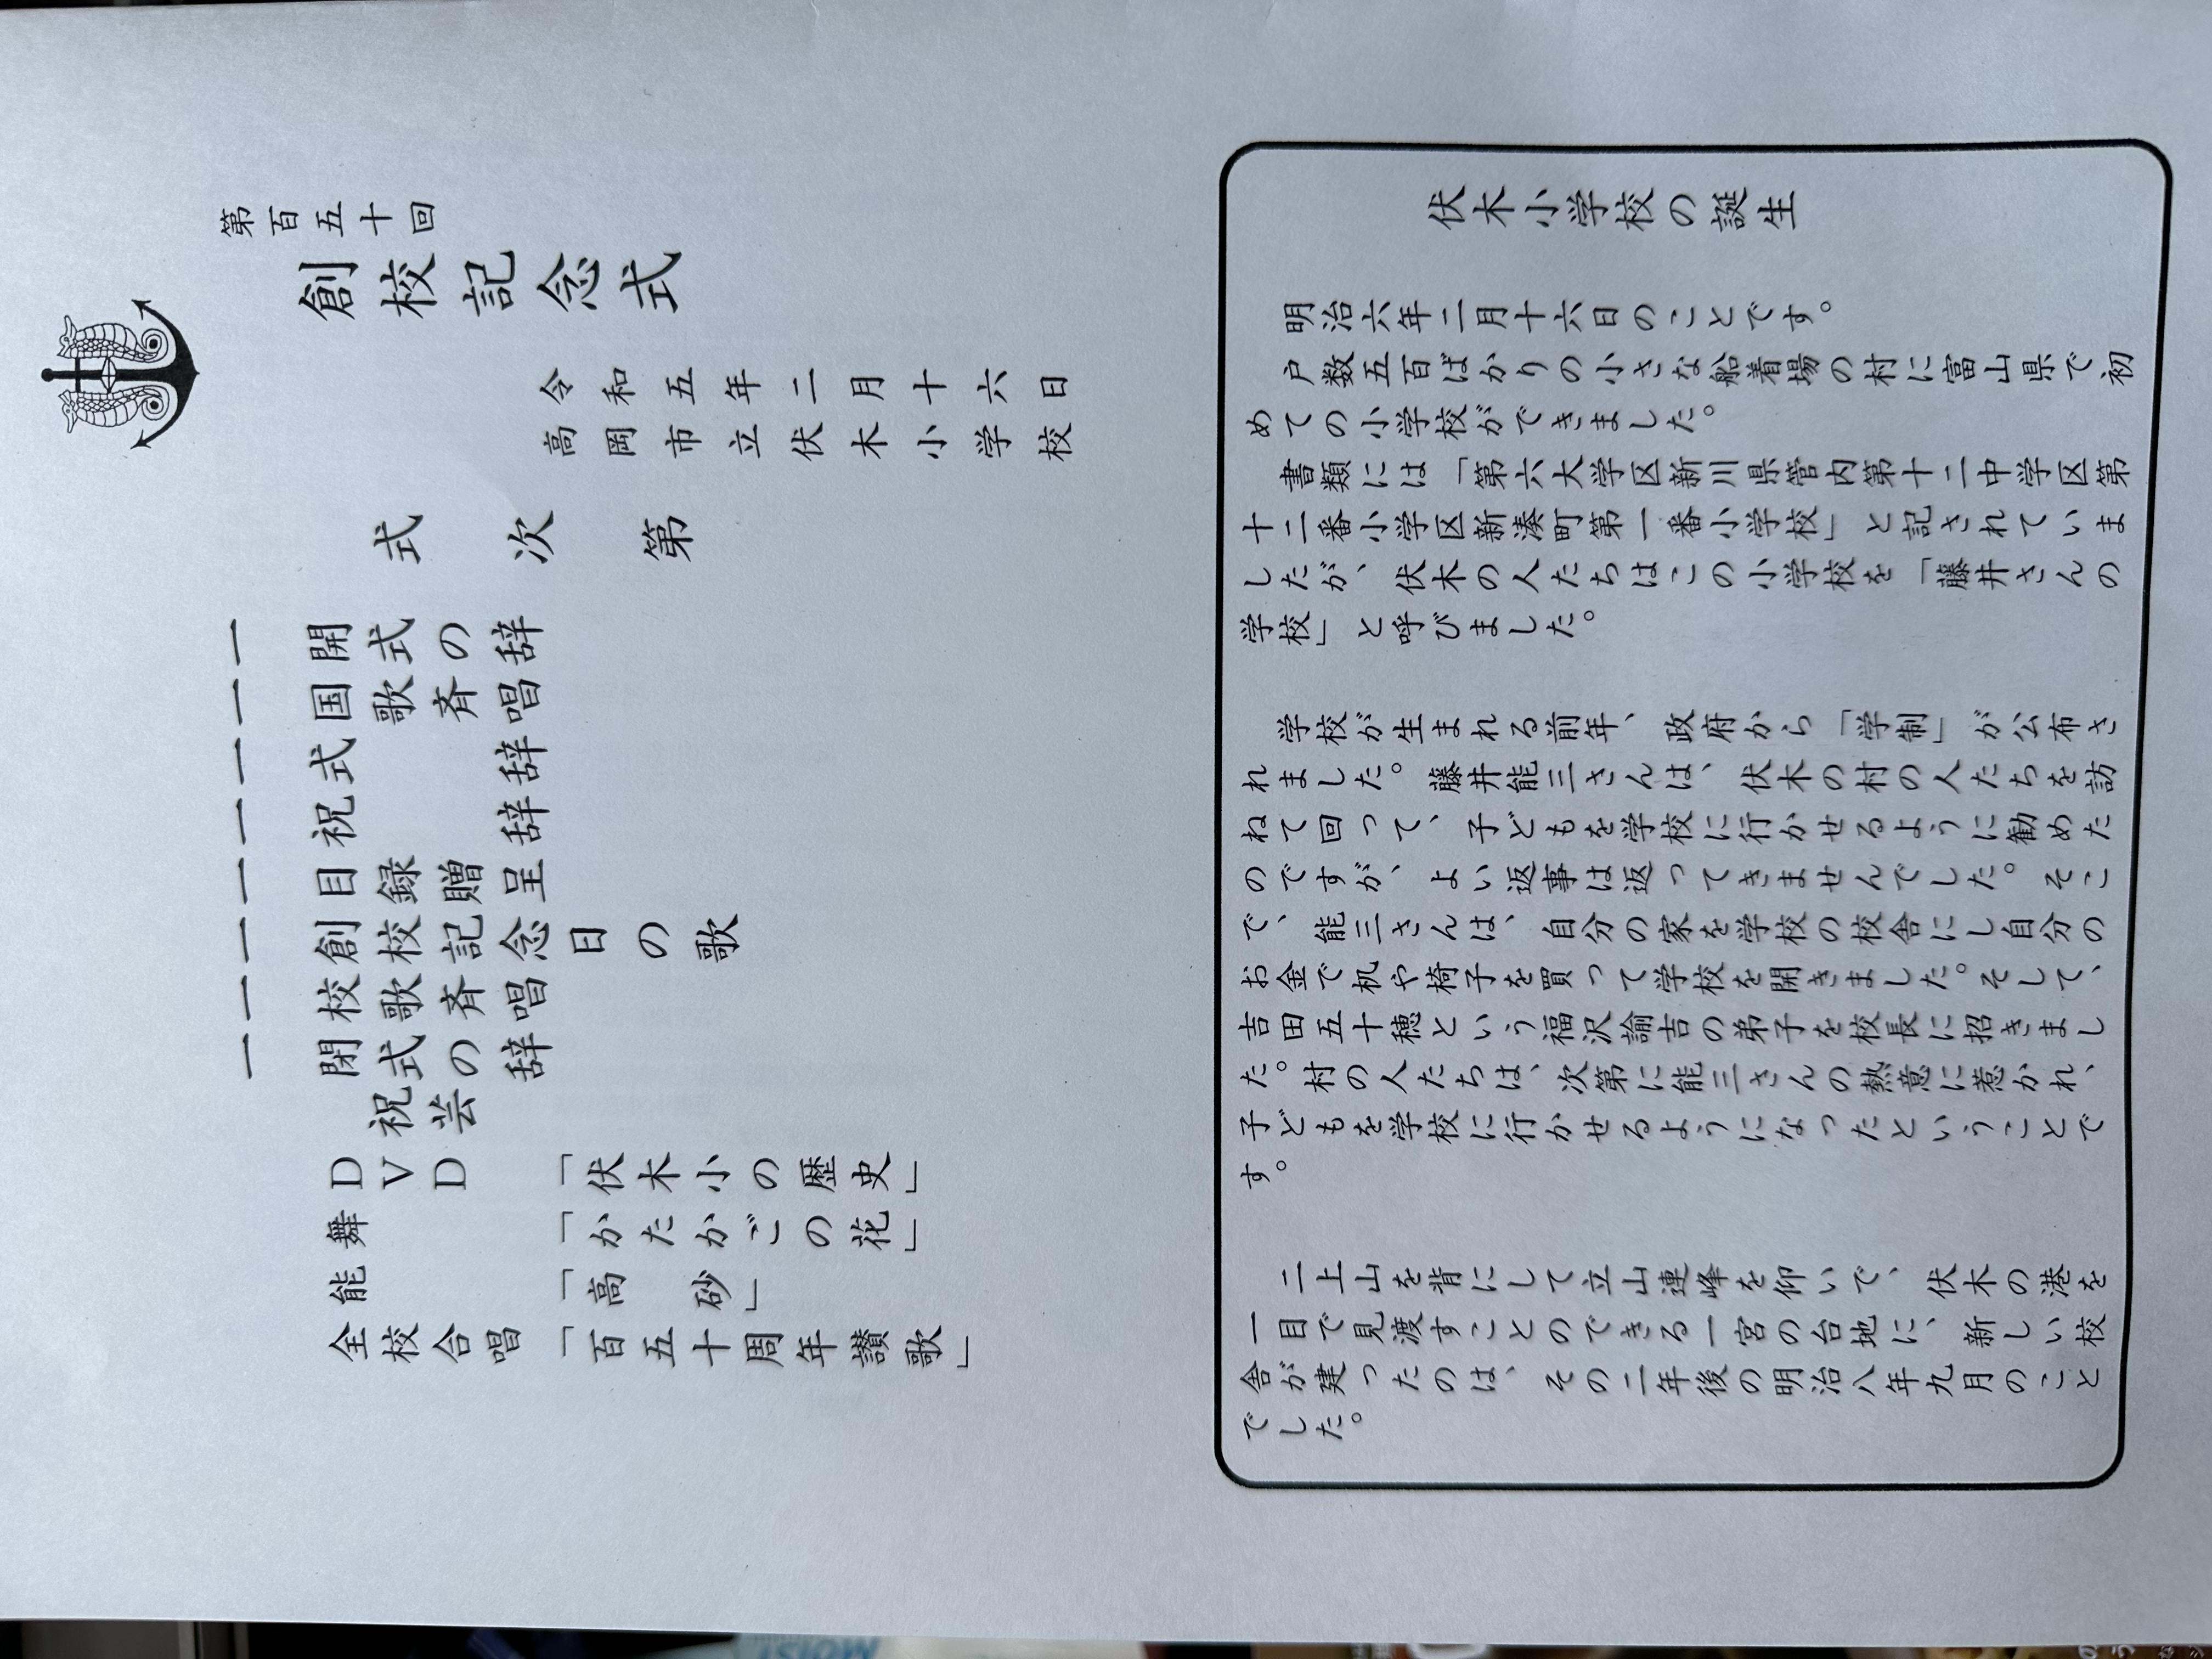 第百五十回
創校記念式
令和五年二月十六日
高岡市立伏木小学校
式次第
一 開式の辞
一 国歌斉唱
一 式辞
一 祝辞
一 目録贈呈
一 創校記念日の歌
一 校歌斉唱
一 閉式の辞
祝芸
DVD 「伏木小の歴史」
舞 「かたかごの花」
能 「高砂」
全校合唱 「百五十周年讃歌」
伏木小学校の誕生
明治六年二月十六日のことです。
戸数五百ばかりの小さな船着場の村に富山県で初
めての小学校ができました。
書類には「第六大学区新川県管内第十二中学区第
十二番小学区新湊町第一番小学校」と記されていま
したが、伏木の人たちはこの小学校を「藤井さんの
学校」と呼びました。
学校が生まれる前年、政府から「学制」が公布さ
れました。藤井能三さんは、伏木の村の人たちを訪
ねて回って、子どもを学校に行かせるように勧めた
のですが、よい返事は返ってきませんでした。そこ
で、能三さんは、自分の家を学校の校舎にし自分の
お金で机や椅子を買って学校を開きました。そして、
吉田五十穂という福沢諭吉の弟子を校長に招きまし
た。村の人たちは、次第に能三さんの熱意に惹かれ、
子どもを学校に行かせるようになったということで
す。
二上山を背にして立山連峰を仰いで、伏木の港を
一目で見渡すことのできる一宮の台地に、新しい校
舎が建ったのは、その二年後の明治八年九月のこと
でした。
MOIST